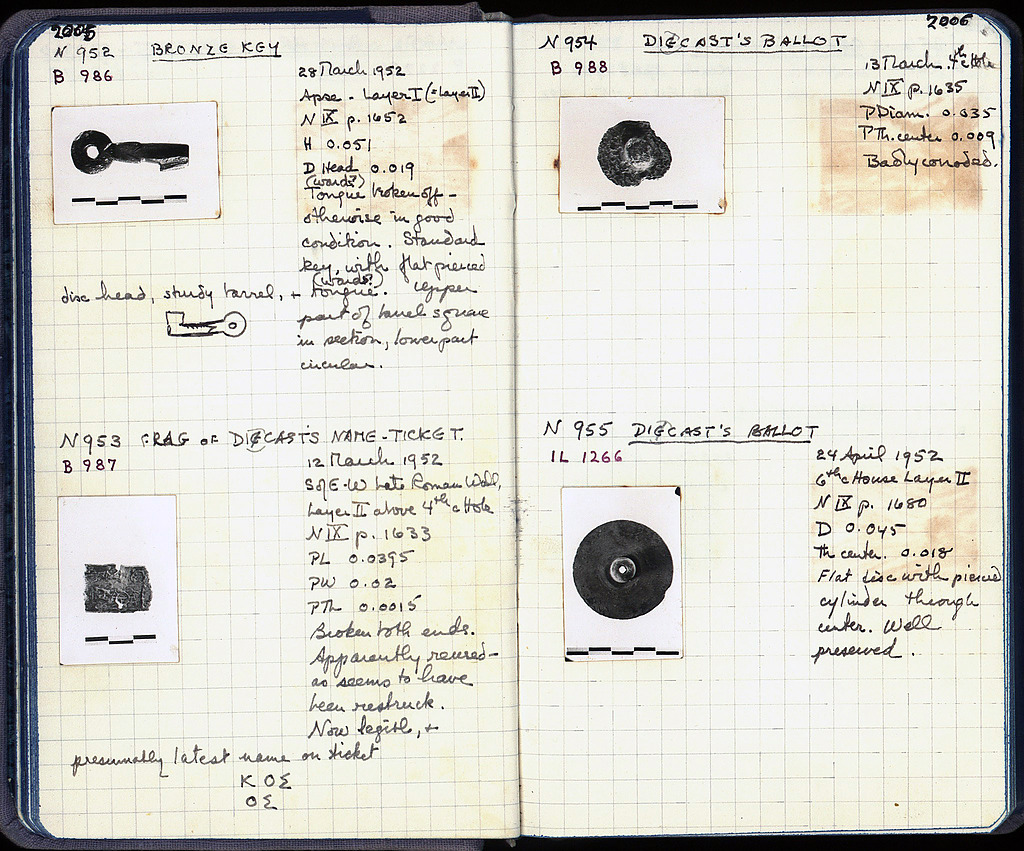 2005
N 952 BRONZE KEY
B 986
28 March 1952
Apse - Layer I (= Layer II)
N IX p. 1652
H 0.051
D Head 0.019
(wards?)
Tongue broken off -
otherwise in good
condition. Standard
key, with flat pierced
disc head, sturdy barrel, +
(wards?)
tongue. Upper
part of barrel square
in section, lower part
circular.
N 953 FRAG OF DICAST'S NAME-TICKET.
B 987
12 March 1952
S of E-W Late Roman Wall,
Layer II above 4th c Hole
N IX p. 1633
PL 0.0395
PW 0.02
PTh 0.0015
Broken both ends.
Apparently reused -
as seems to have
been restruck.
Now legible, +
presumably latest name on ticket
Κ ΟΣ
ΟΣ
2006
N 954 DICAST'S BALLOT
B 988
13 March. 4th c Hole
N IX p. 1635
P Diam. 0.035
P Th. center 0.009
Badly corroded.
N 955 DICAST'S BALLOT
IL 1266
24 April 1952
6th c House Layer II
N IX p. 1680
D 0.045
Th center. 0.018
Flat disc with pierced
cylinder through
center. Well
preserved.